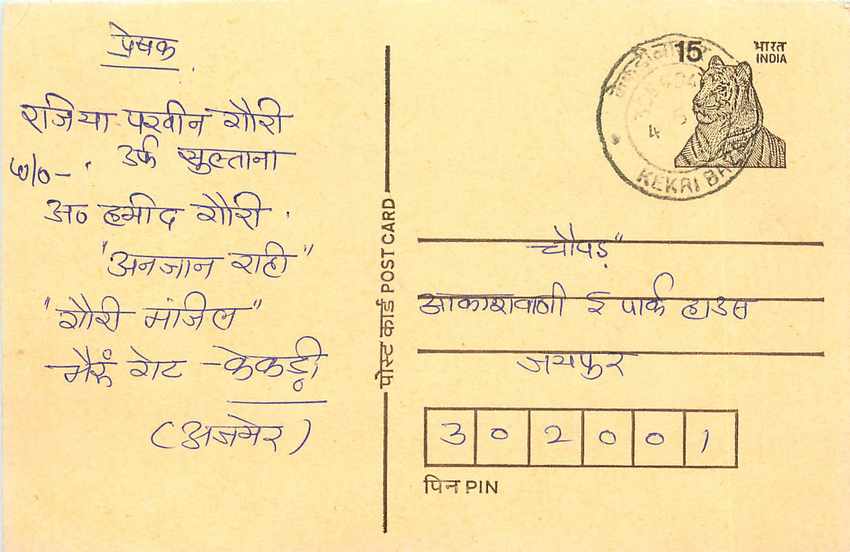 प्रेषक
रजिया परवीन गौरी
उर्फ सुल्ताना
W/o-
अ० हमीद गौरी.
"अनजान राही"
"गौरी मंजिल"
भैरुं गेट - केकड़ी
(अजमेर)
पोस्ट कार्ड POST CARD
15
भारत
INDIA
KEKRI
चौपड़"
आकाशवाणी ई पार्क हाउस
जयपुर
302001
पिन PIN